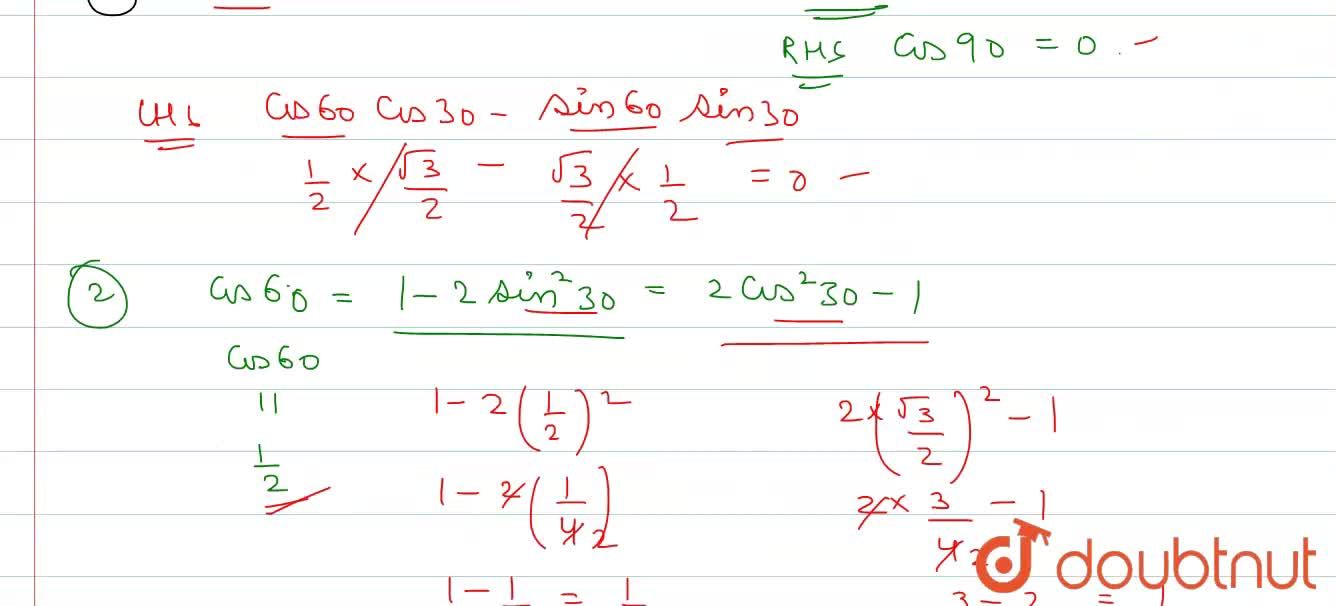 RHS cos 90 = 0 . -
LHS cos 60 cos 30 - sin 60 sin 30
1/2 × √3/2 - √3/2 × 1/2 = 0 -
2 cos 60 = 1 - 2 sin² 30 = 2 cos² 30 - 1
cos 60
11 1 - 2 (1/2)² 2 × (√3/2)² - 1
1/2 1 - 2 (1/4 2) 2 × 3/4 2 - 1
doubtnut
1 - 1 = 1 3 - 2 = 1